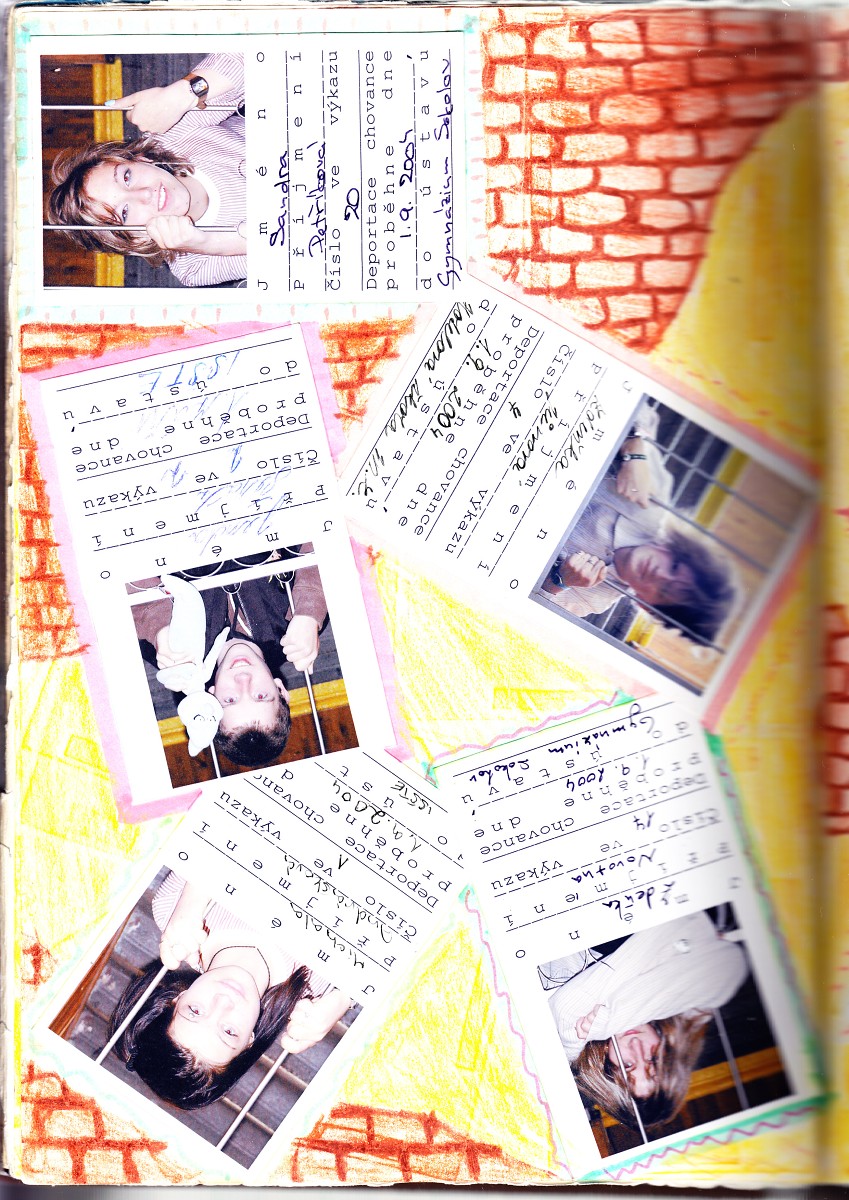 Jméno
Sandra
Příjmení
Petříková
Číslo ve výkazu
20
Deportace chovance
proběhne dne
1.9. 2004
do ústavu
Gymnázium Sokolov
Jméno
Příjmení
Číslo ve výkazu
Deportace chovance
proběhne dne
do ústavu
ISŠTE
Jméno
Zdeňka
Příjmení
Číslo ve výkazu
4
Deportace chovance
proběhne dne
1.9. 2004
do ústavu
škola
Jméno
Michaela
Příjmení
Číslo ve výkazu
1
Deportace chovanc
proběhne
1.9.2004
do úst
ISŠTE
Jméno
Zdeňka
Příjmení
Novotná
Číslo ve výkazu
14
Deportace chovance
proběhne dne
1.9.2004
do ústavu
Gymnázium Sokolov